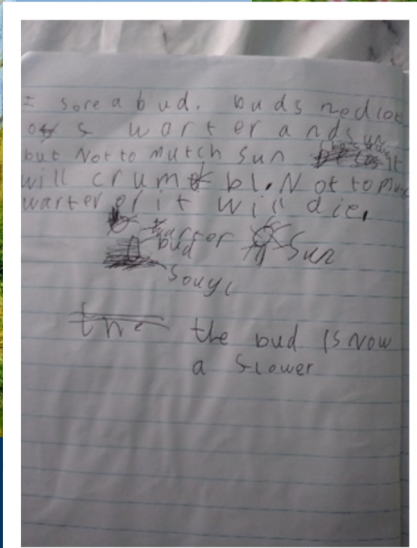 I sore a bud. buds ned lot
of s warter and sun
but Not to mutch sun it
will crum bl. Not to mu
warter or it will die.
warter
bud Sun
Souyl
the the bud is Now
a slower